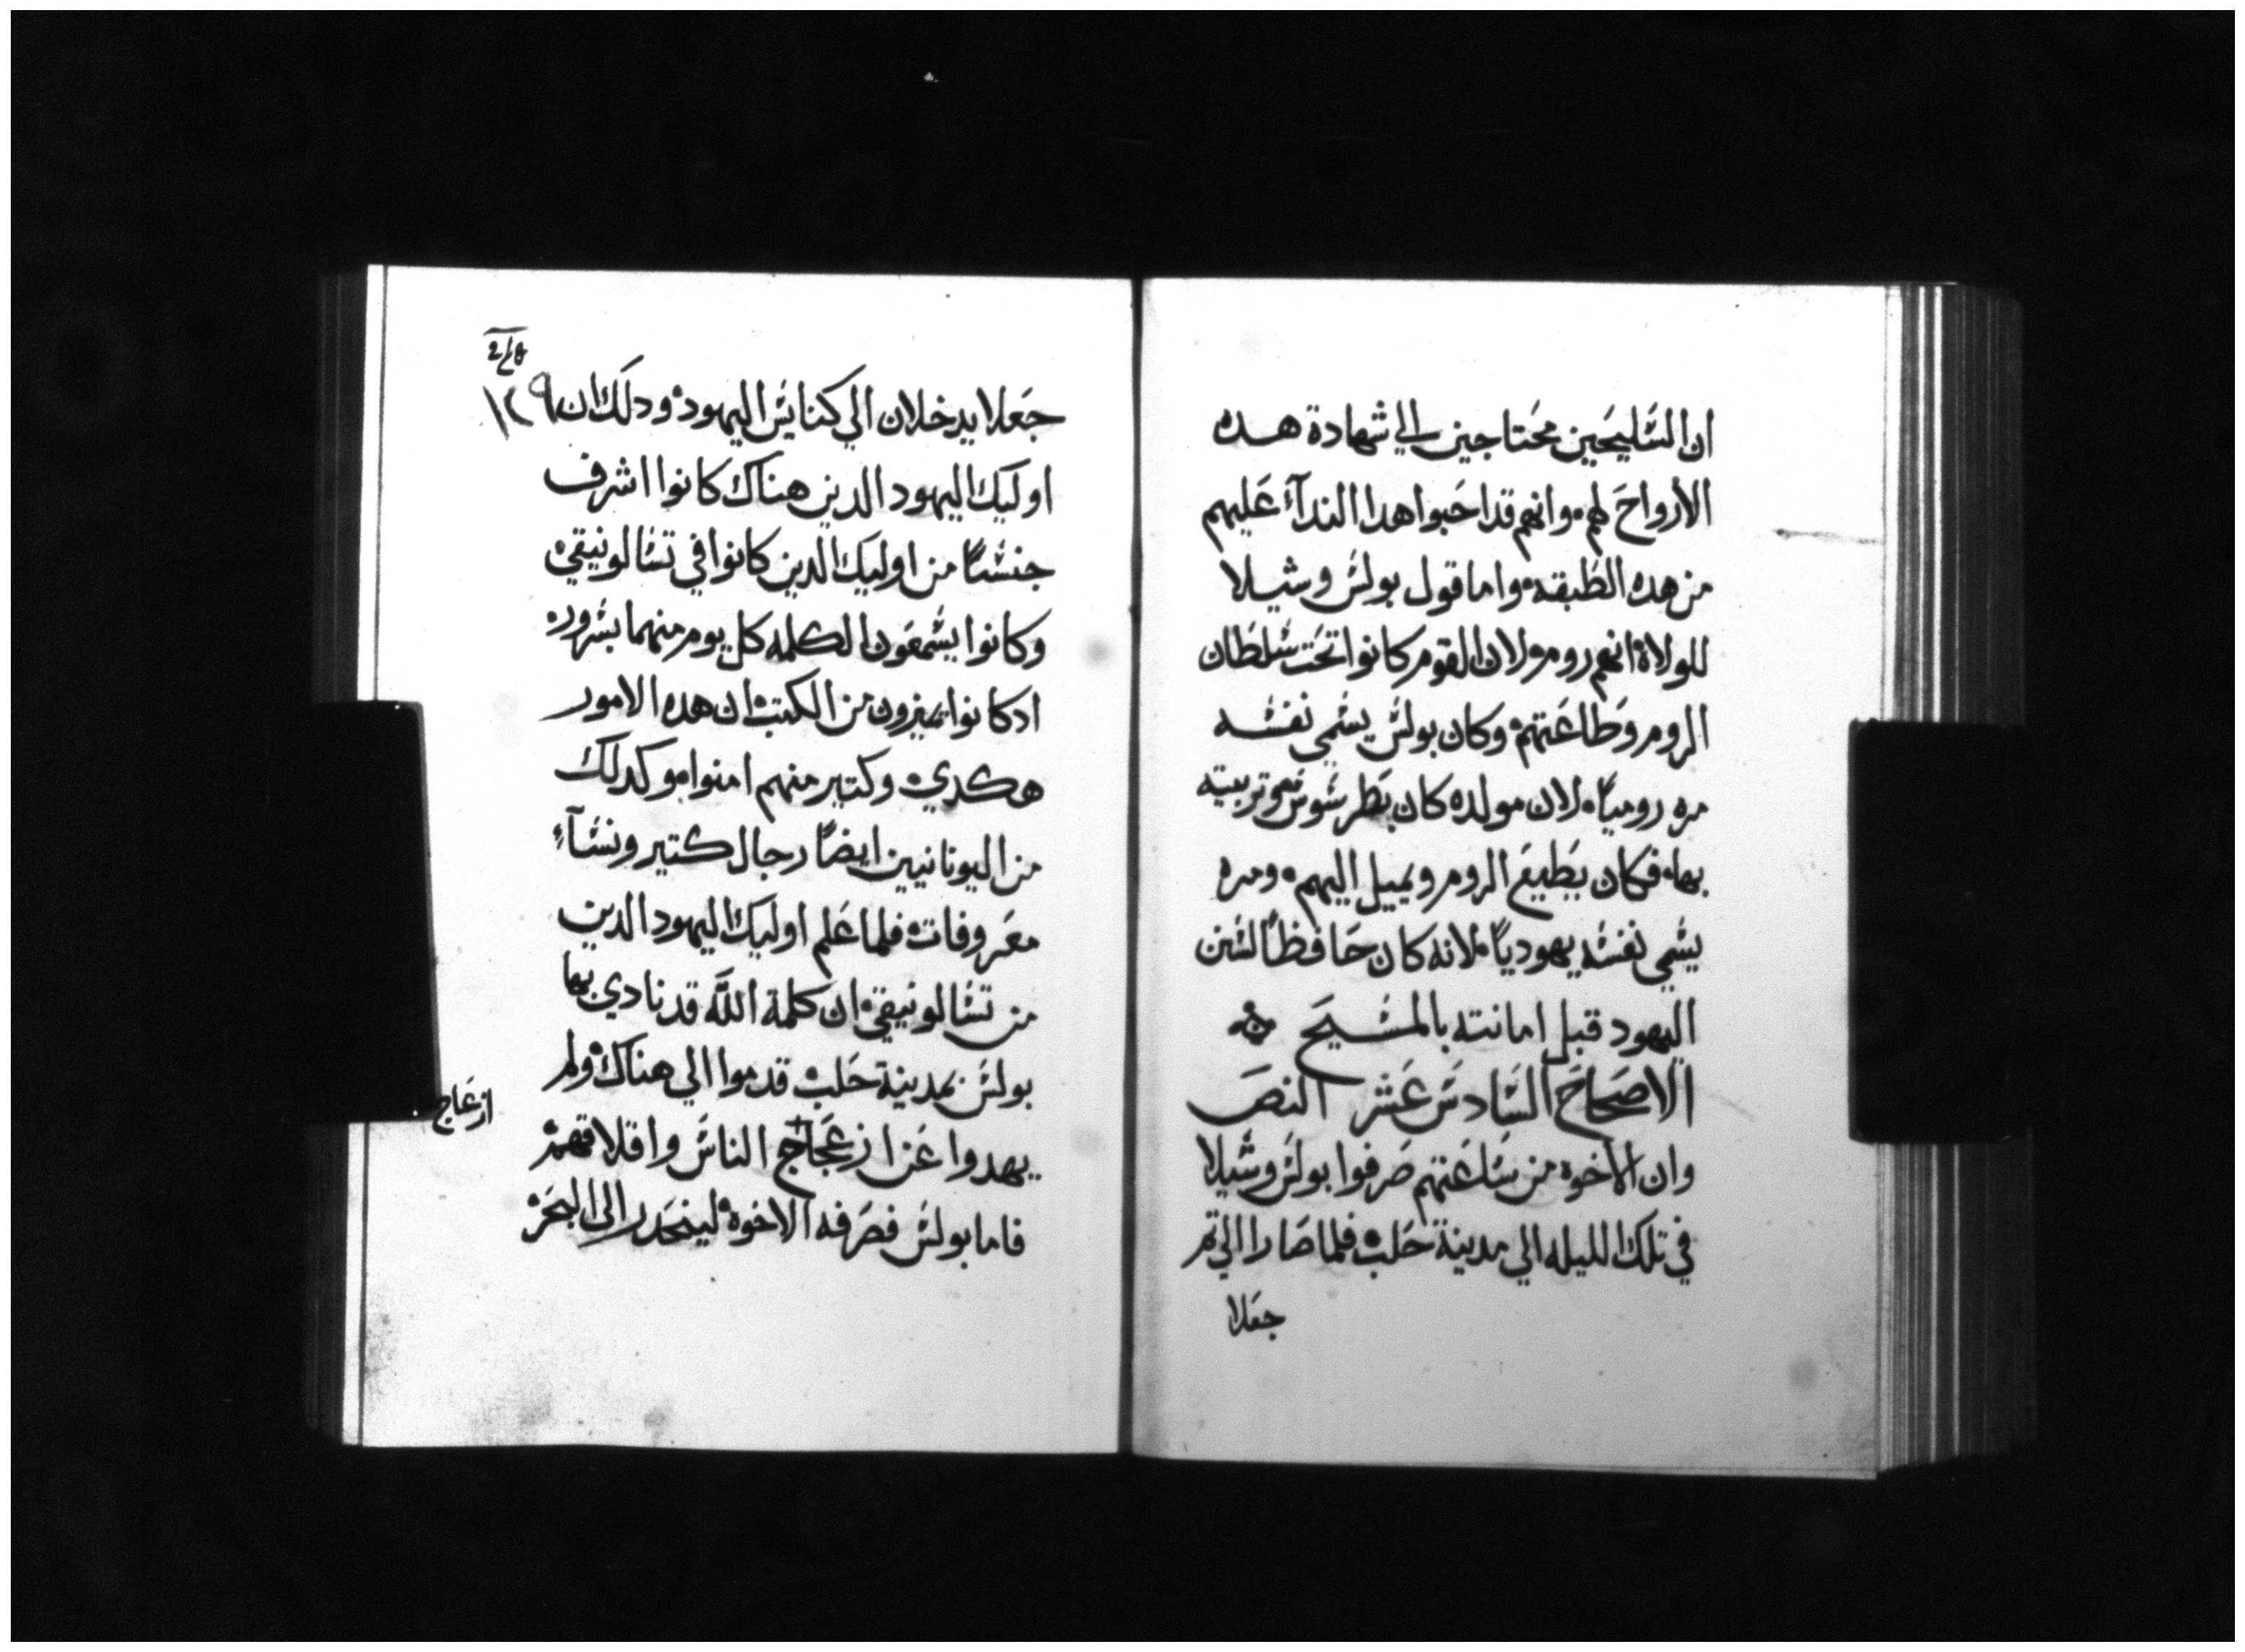 ان السليحين محتاجين الي شهادة هده
الأرواح لهم وانهم قد احبوا هدا الندآء عليهم
من هده الطبقه واما قول بولس وشيلا
للولاة انهم روم ولان القوم كانوا تحت سلطان
الروم وطاعتهم وكان بولس يسمي نفسه
مره روميًا لان مولده كان بطرسوس وتربيته
بها فكان يطيع الروم ويميل اليهم ومره
يسمي نفسه يهوديًا لانه كان حافظًا لسنن
اليهود قبل امانته بالمسيح
الاصحاح السادس عشر النص
وان الاخوه من ساعتهم صرفوا بولس وشيلا
في تلك الليله الي مدينة حلب فلما صارا الي تم
جعلا
١٢٩
جعلا يدخلان الي كنايس اليهود ودلك ان
اوليك اليهود الدين هناك كانوا اشرف
جنسًا من اوليك الدين كانوا في تسالونيقي
وكانوا يسمعون الكلمه كل يوم منهما بسرور
ادكانوا يميزون من الكتب ان هده الامور
هكدي وكتير منهم امنوا وكدلك
من اليونانيين ايضًا رجال كتير ونسآء
معروفات فلما علم اوليك اليهود الدين
من تسالونيقي ان كلمة اللَّه قد نادي بها
بولس بمدينة حلب قدموا الي هناك ولم
يهدوا عن ازعجاج الناس واقلاقهم
ازعاج
فاما بولس فصرفه الاخوه لينحدر الى البحر